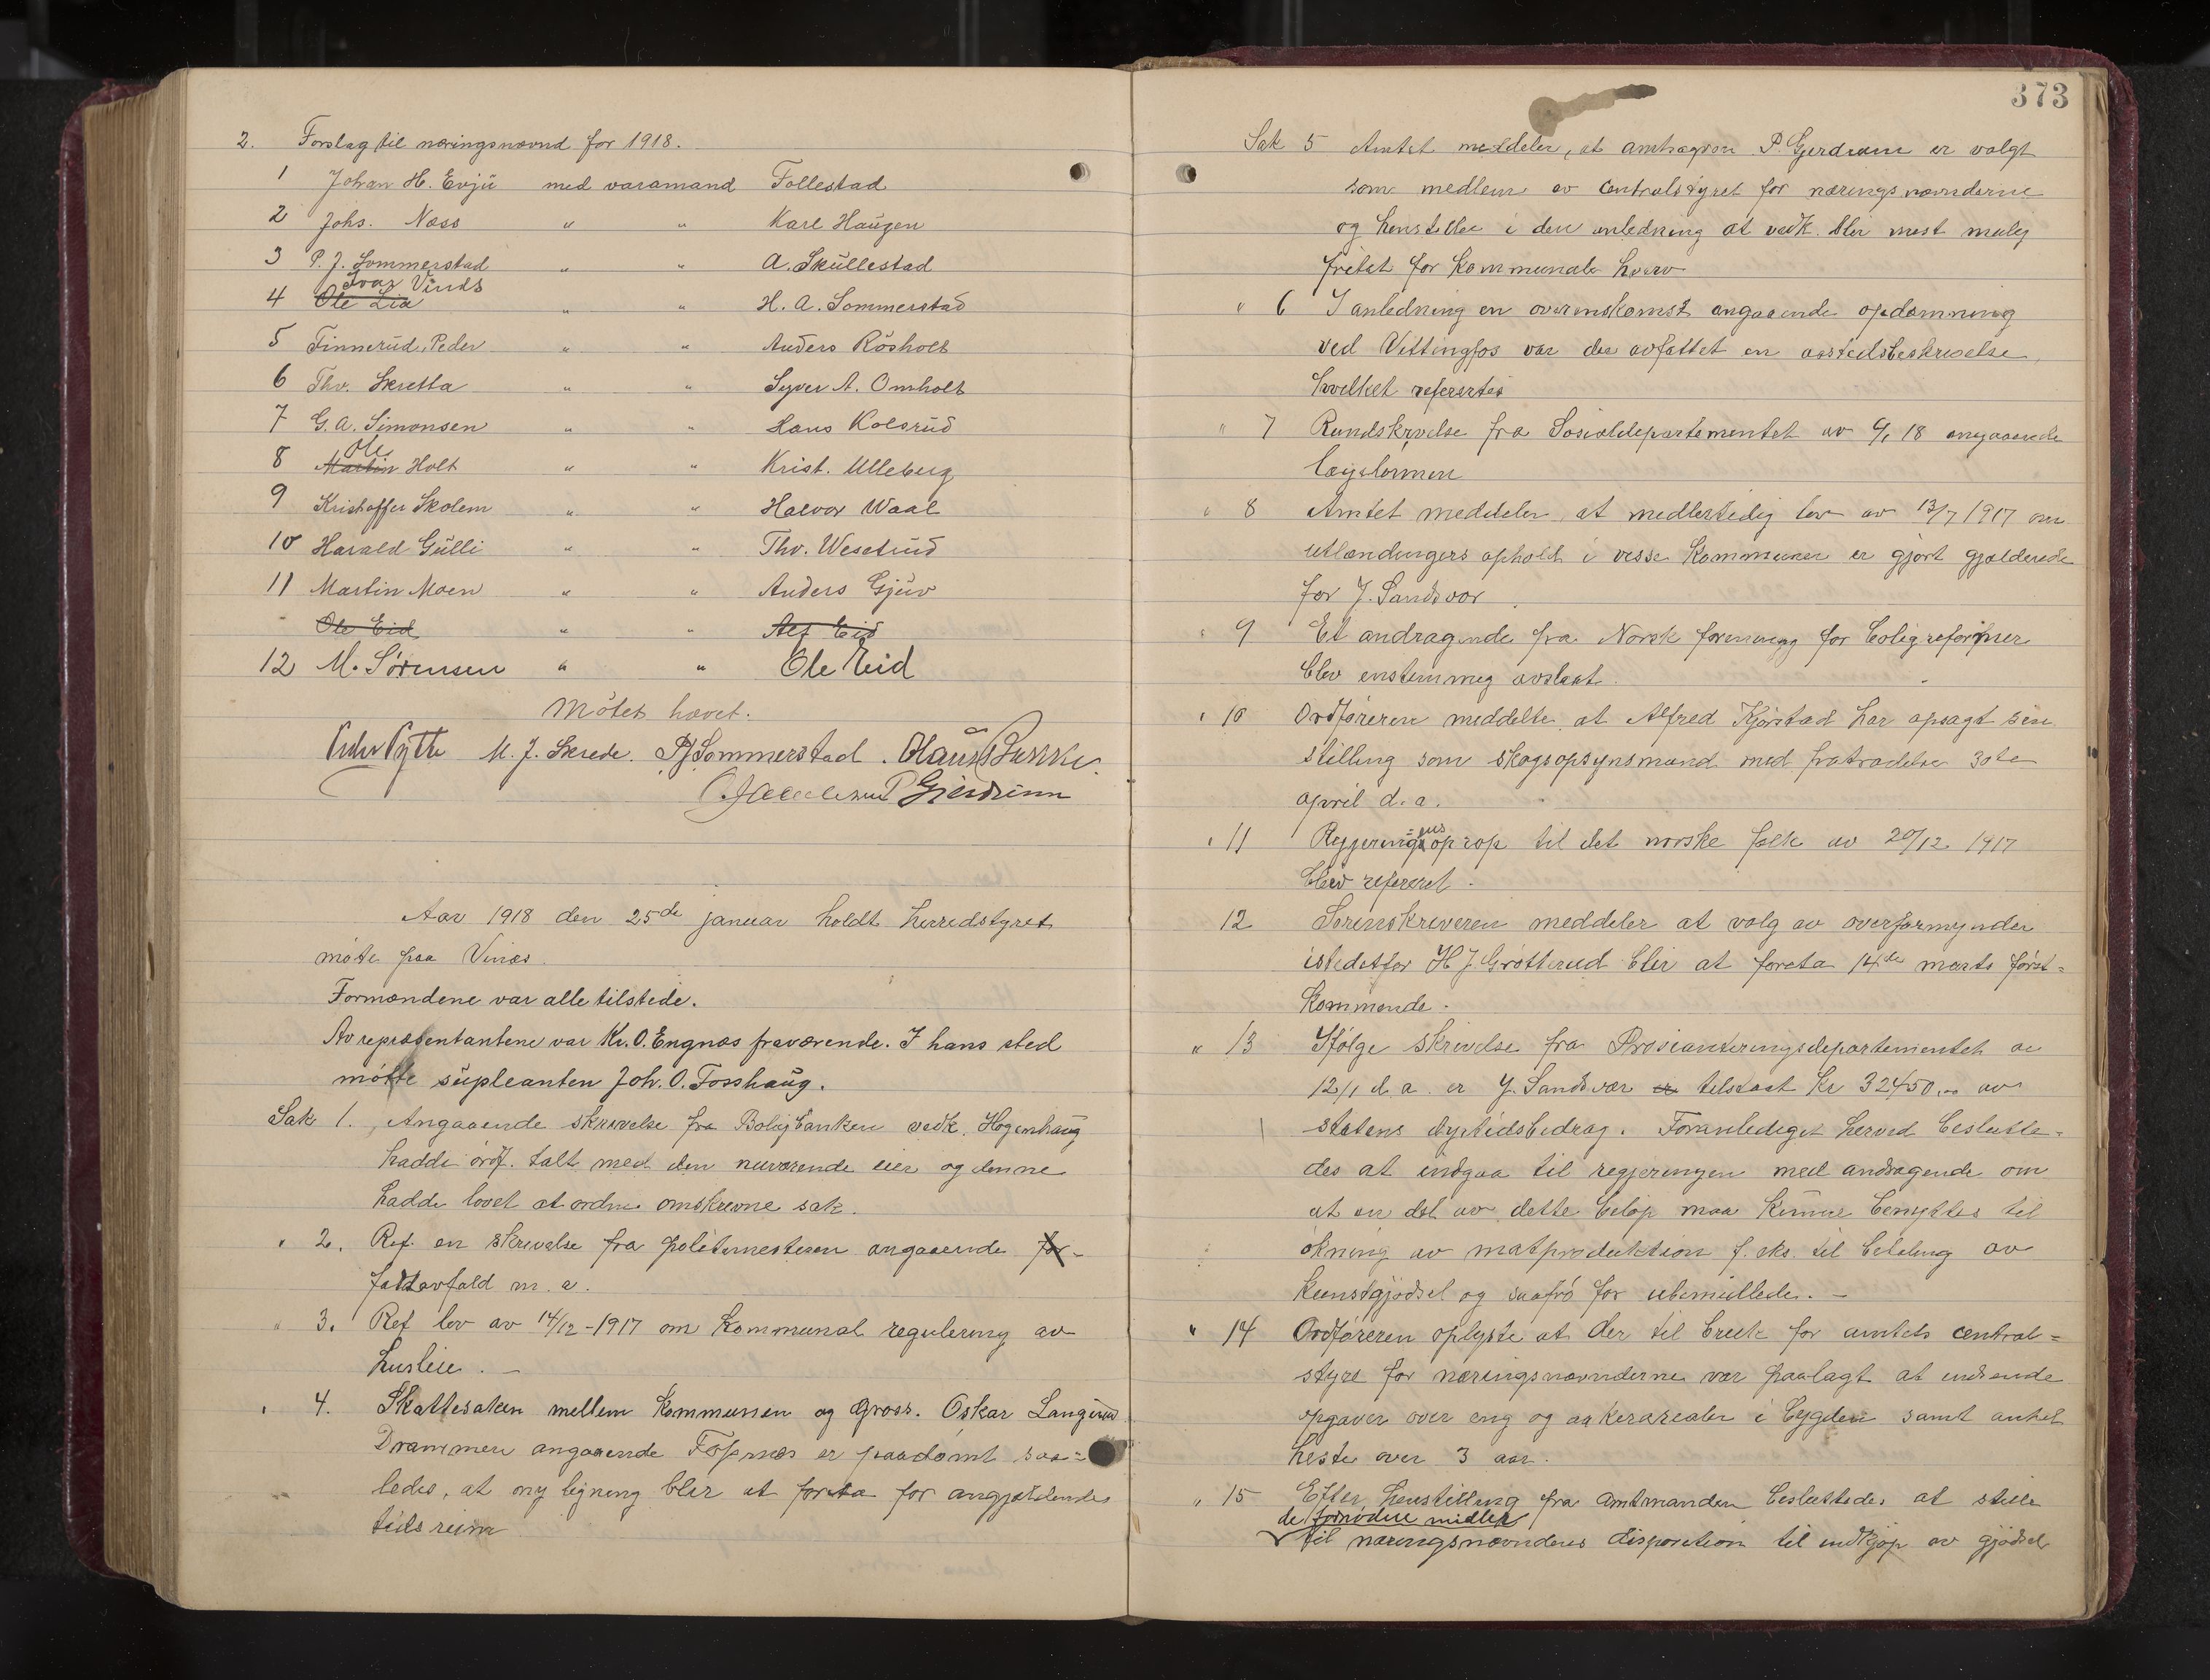 2. Forslag til næringsnævnd for 1918.
1 Johan H. Evju med varamand Follestad
2 Johs. Næss " " Karl Haugen
3 P. J. Sommerstad " " A. Skullestad
Ivar Vinds
4 Ole Lia " " H. A. Sommerstad
5 Finnerud, Peder " " Anders Rösholt
6 Thv. Skretta " " Syver A. Omholt
7 G. A. Simonsen " " Hans Kolsrud
Ole
8 Martin Holt " " Krist. Ulleberg
9 Kristoffer Skolem " " Halvor Waal
10 Harald Gulli " " Thv. Weselrud
11 Martin Moen " " Anders Gjuv
" Ole Eid " " Alf Eid
12 M. Sörensen " " Ole Eid
Mötet hævet.
M. J. Skrede. PJ Sommerstad.
P Gjerdrum
Aar 1918 den 25de januar holdt herredstyret
möte paa Vinæs.
Formændene var alle tilstede.
Av repræsentantene var Kr. O. Engnæs fraværende. I hans sted
mötte supleanten Joh. O. Fosshaug.
Sak 1. Angaaende skrivelse fra Boligbanken vedk. Hogenhaug
hadde ordf. talt med den nuværende eier og denne
hadde lovet at ordne omskrevne sak.
" 2. Ref. en skrivelse fra politimesteren angaaende for-
fattavfald m. a.
" 3. Ref lov av 14/12-1917 om kommunal regulering av
husleie. -
" 4. Skattesaken mellem kommunen og gross. Oskar Langerud
Drammen angaaende Fossnæs er paadömt saa=
ledes, at ny ligning blir at foreta for angjældendes
tidsrum
373
Sak 5 Amtet meddeler, at amtsagron P. Gjerdrum er valgt
som medlem av centralstyret for næringsnævnderne
og henstiller i den anledning at vedk. blir mest mulig
fritat for kommunale hverv
" 6 I anledning en overenskomst angaaende opdæmning
ved Vittingfos var der avfattet en aastedsbeskrivelse,
hvilket referertes
" 7 Rundskrivelse fra Sosialdepartementet av 18 angaaende
lægelönnen
" 8 Amtet meddeler, at medlertidig lov av 13/7 1917 om
utlændingers ophold i visse kommuner er gjort gjældende
for Y. Sandsvær.
" 9 Et andragende fra Norsk forening for boligreformer
blev enstemmig avslaat.
" 10 Ordföreren meddelte at Alfred Kjörstad har opsagt sin
stilling som skogsopsynsmand med fratrædelse 30te
april d. a.
" 11 Regjeringens oprop til det norske folk av 20/12 1917
blev referert.
12 Sorenskriveren meddeler at valg av overformynder
istedetfor H J Grötterud blir at foreta 14de marts först=
kommende.
" 13 Ifölge skrivelse fra Provianteringsdepartementet av
12/1 d. a. er Y. Sandsvær er tilstaat kr 32450.00 av
statens dyrtidsbidrag. Foranlediget herved beslutte=
des at indgaa til regjeringen med andragende om
at en del av dette belöp maa kunne benyttes til
ökning av matproduktion f. eks. til bilæling av
kunstgjödsel og saafrö for ubemidlede. -
" 14 Ordföreren oplyste at der til bruk for amtets central=
styre for næringsnævnderne var paalagt at indsende
opgaver over eng og aakerarealer i bygden samt antal
heste over 3 aar.
" 15 Efter henstilling fra amtmanden besluttedes at stille
de fornödne midler
til næringsnævndens disposition til indkjöp av gjödsel